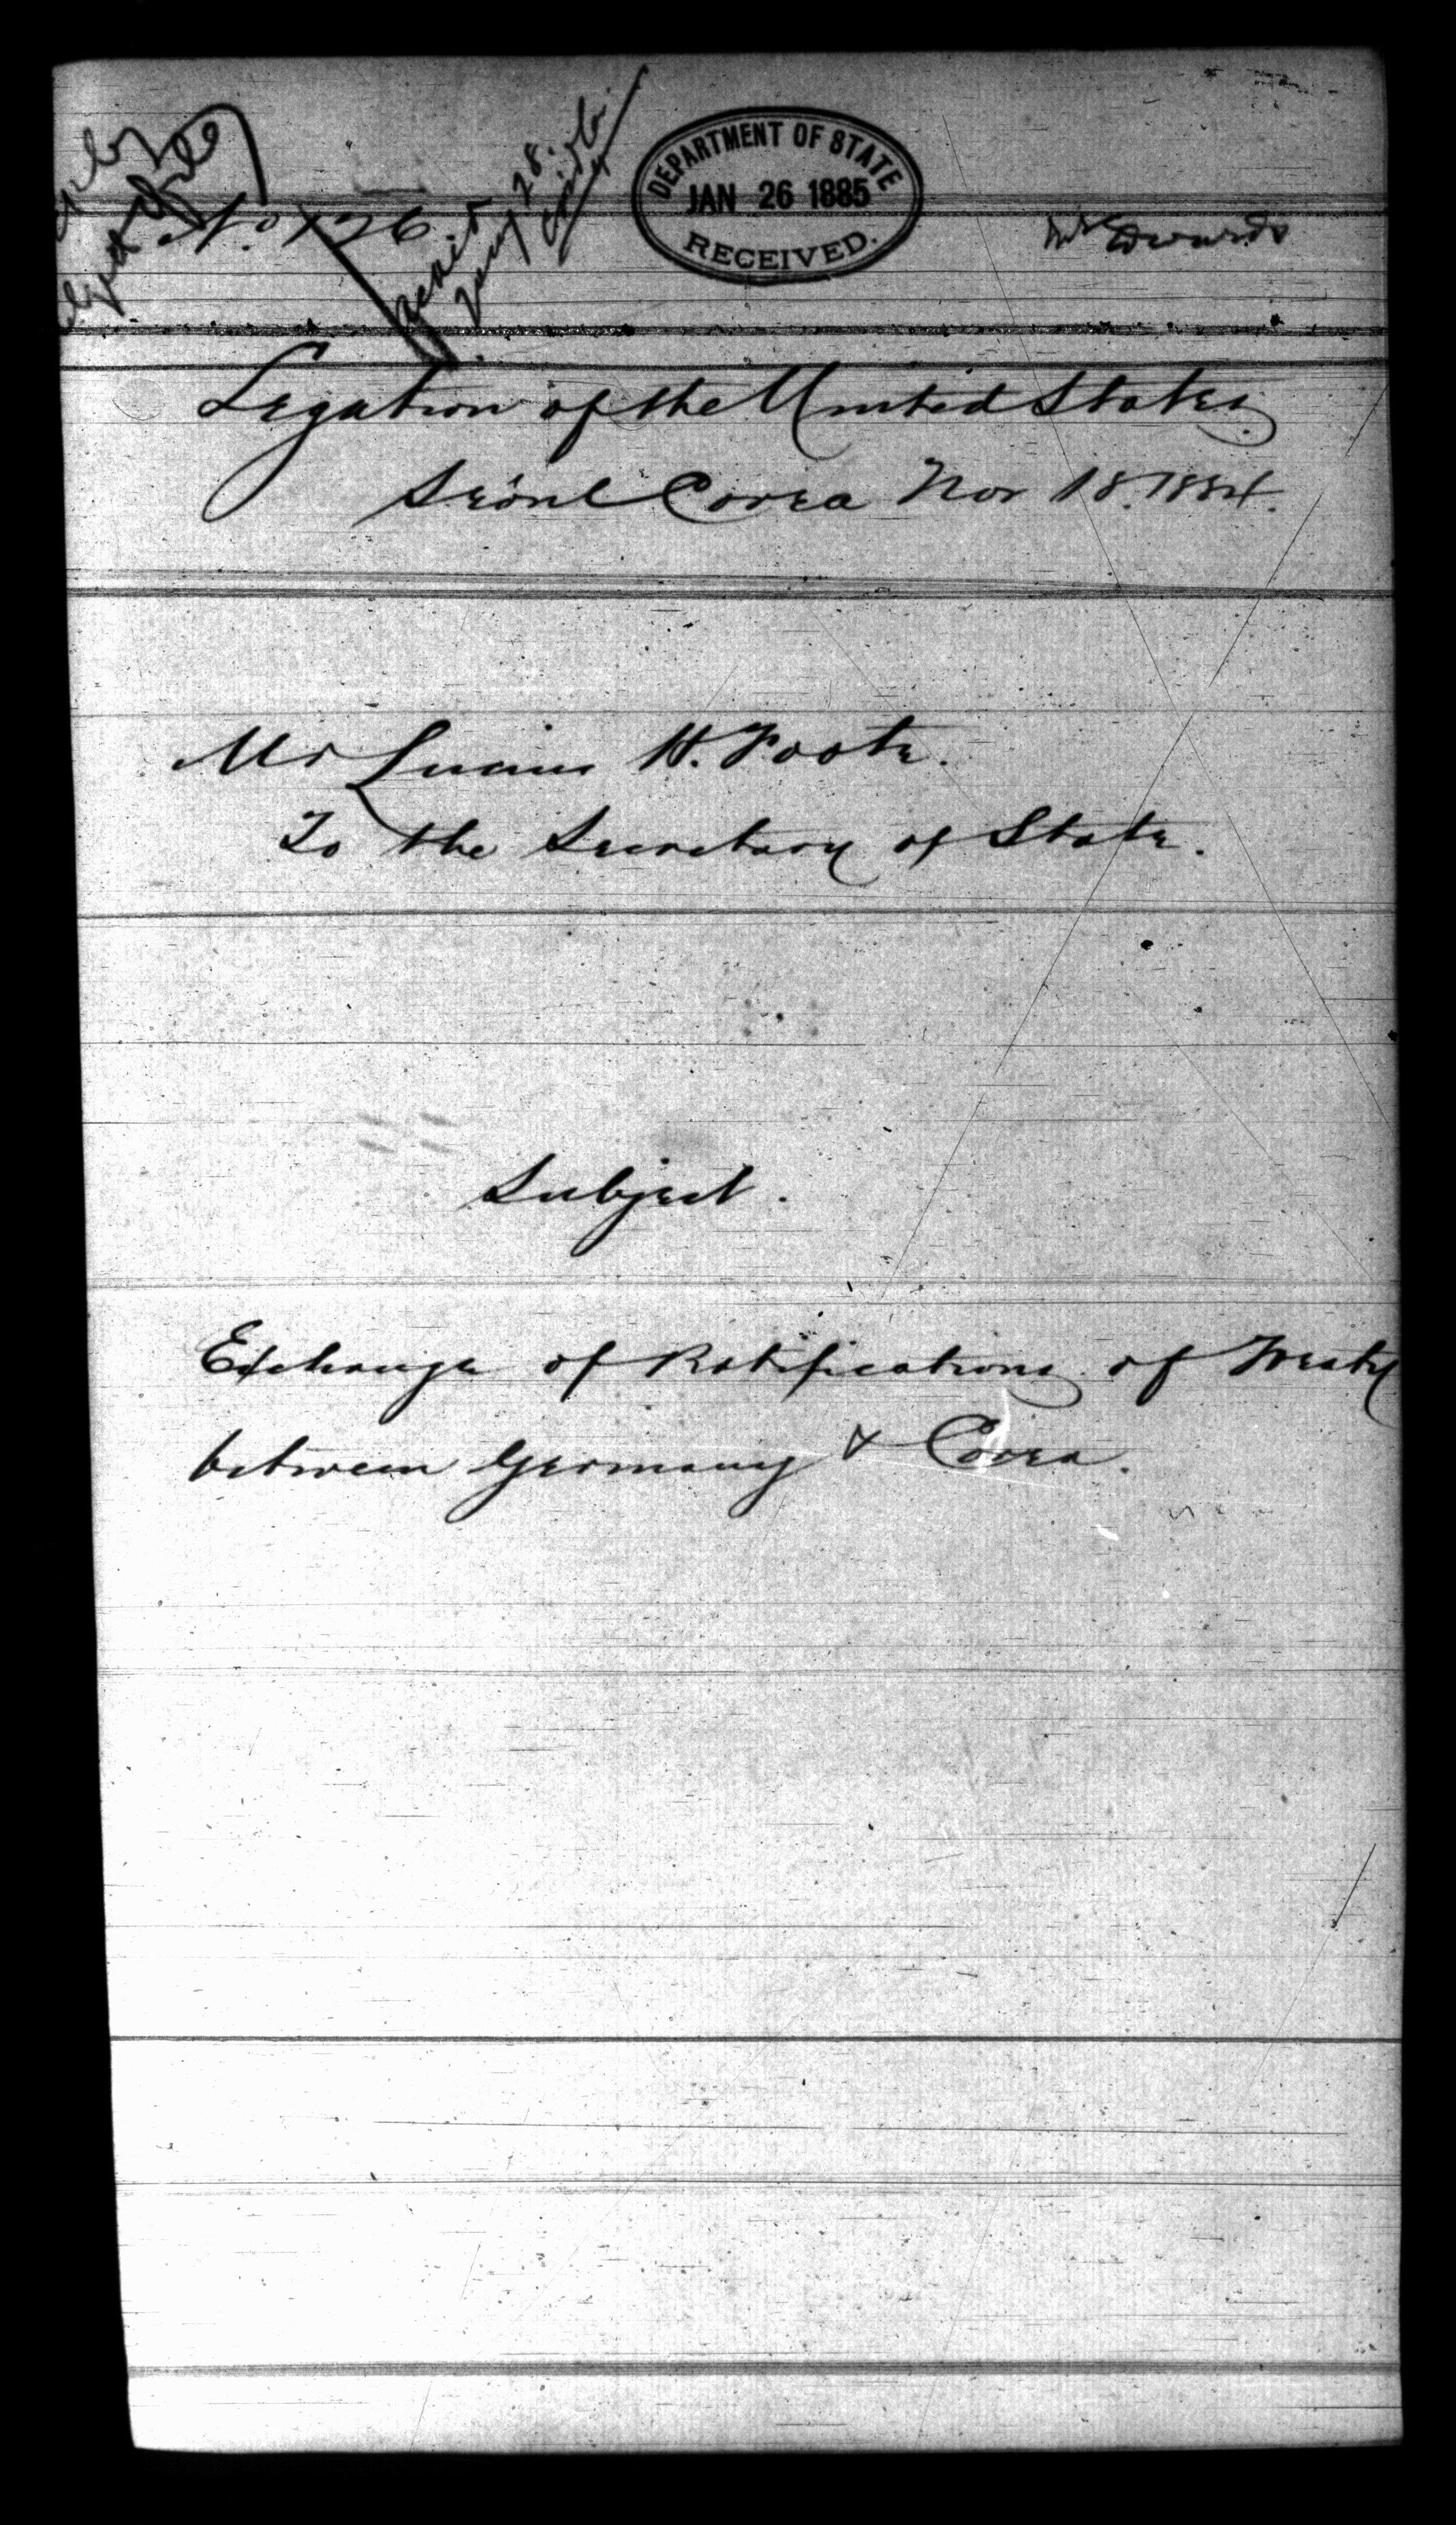 DEPARTMENT OF STATE
JAN 26 1885
RECEIVED.
No 126.
Mr Edwards
Jany 28.
Legation of the United States
Seöul Corea Nov 18. 1884.
Mr Lucius H. Foote.
To the Secretary of State.
Subject.
Exchange of Ratifications of Treaty
between Germany & Corea.